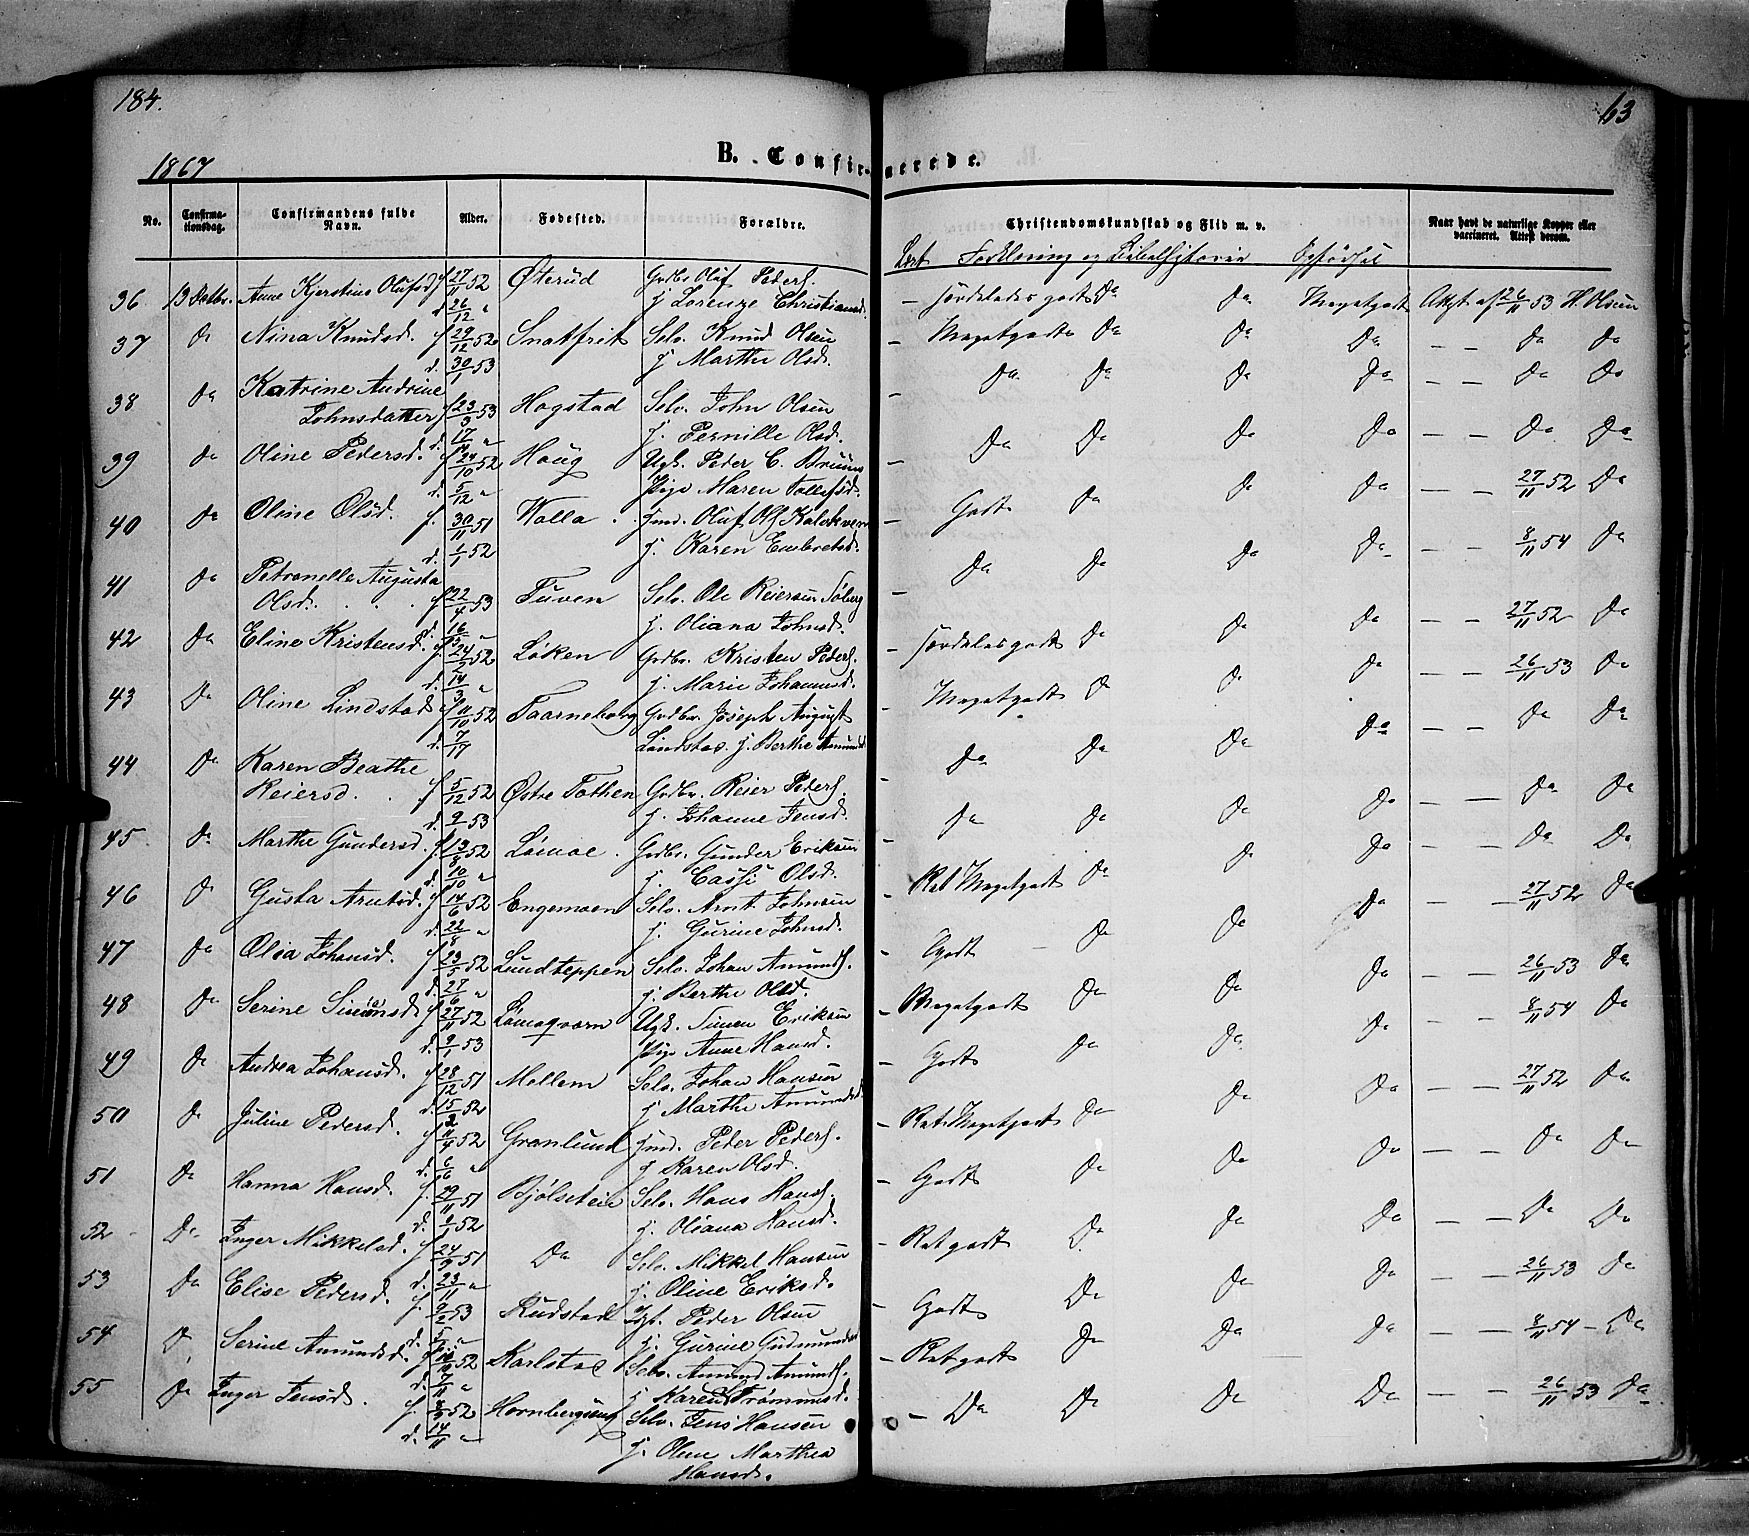 184.
63
1867
B. Confirmerede.
No.
Confirma-
tionsdag.
Confirmandens fulde
Navn.
Alder.
Fødested.
Forældre.
Christendomskundskab og Flid m. v.
Naar havt de naturlige Kopper eller
vaccineret. Attest derom.
Læst Forklaring og Bibelhistorie Opførsel
36 13 Octbr. Anne Kjerstine Olufsd f 27/11 52 Østerud Grdbr Oluf Peders. – særdeles godt Do Do Meget godt Attst af 26/11 53 H. Olsen
d 26/12 " f Lorenze Christiansd.
37 Do Nina Knudsd. f 29/12 52 Snatfrit Selv. Knud Olsen – Meget godt Do Do Do – – Do Do
d. 30/1 53 f Marthe Olsd.
38 Do Katrine Andrine – Do Do Do Do – – Do Do
Johnsdatter f 23/3 53 Hagstad Selv. John Olsen
d. 17/4 " f. Pernille Olsd.
39 Do Oline Pedersd. f 24/10 52 Houg Ugk. Peder C. Bruun – Do Do Do Do – – Do Do
d. 5/12 " Pige Maren Tollefsd.
40 Do Oline Olsd. f. 30/11 51 Kolla Hmd. Oluf Ols. Kalskveen – Godt Do Do Do – – 27/11 52 Do
d. 1/1 52 f. Karen Embretsd.
41 Do Petronelle Augusta – Do Do Do Do – – 8/11 54 Do
Olsd. f 22/4 53 Tuven Selv. Ole Reiersen
d. 16/5 " f. Oliana Johnsd.
42 Do Eline Kristensd. f. 24/2 52 Løken Grdbr. Kristen Peders. – særdeles godt Do Do Do – – 27/11 52 Do
d. 14/3 " f. Marie Johannsd.
43 Do Oline Lindstad f 11/10 52 Taarneborg Grdbr. Joseph August – Meget godt Do Do Do – – 26/11 53 Do
d. 7/11 Lindstad. f. Berthe Amundsd
44 Do Karen Beathe – Do Do Do Do – – Do Do
Reiersd. f 5/12 52 Østre Tothen Grdbr. Reier Peders.
d. 9/ 53 f. Johanne Jensd.
45 Do Marthe Gundersd. f. 13/8 52 Lømoe Grdbr. Gunder Eriksen – Do Do Do Do – – Do Do
d. 10/10 " f. Olsd.
46 Do Gusta Arntsd. f 14/6 52 Engemoen Selv. Arnt Johnsen – Ret Meget godt Do Do Do – – Do Do
d. 22/8 " f. Gurine Johnsd.
47 Do Olea Johansd. f 23/5 52 Lundteppen Selv. Johan Amunds. – Godt – Do Do Do – – 27/11 52 Do
d. 27/6 " f. Berthe Olsd.
48 Do Serine Simensd f 27/11 52 Lømoqværn Ugk. Simen Eriksen – Meget godt Do Do Do – – 26/11 53 Do
d. 9/1 53 Pige Anne Hansd.
49 Do Andrea Johansd. f 28/12 51 Mellem Selv. Johan Hansen – Godt Do Do Do – – 8/11 54 Do
d. 15/2 52 f Marthe Amundsd.
50 Do Juline Pedersd. f 11/4 52 Grønlund Hmd. Peder Peders. – Ret Meget godt Do Do Do – – 27/11 52 Do
d. 6/6 " f Karen Olsd.
51 Do Hanna Hansd. f. 29/11 51 Bjølseteie Selv. Hans Hans. – Godt Do Do Do – – Do Do
d. 1/ 52 f. Oliana Hansd.
52 Do Inger Mikkelsd. f 24/9 51 Do Selv. Mikkel Hansen – Ret godt Do Do Do – – Do Do
d. 23/11 " f. Oline Eriksd.
53 Do Elise Pedersd. f. 9/2 53 Rudstad Peder Olsen – Godt Do Do Do – – 26/11 53 Do
f. Gurine Gudmundsd
54 Do Serine Amundsd. f 52 Karlstad Selv. Amund Amunds. – Ret godt Do Do Do – – 8/11 54 – Do
d. 7/11 " f Karen Trømmesd.
55 Do Inger Jensd. f. 52 Hornbergseie Selv. Jens Hansen – Do Do Do Do – – 26/11 53 Do
d. 14/11 " f. Oline Marthea
Hansd.